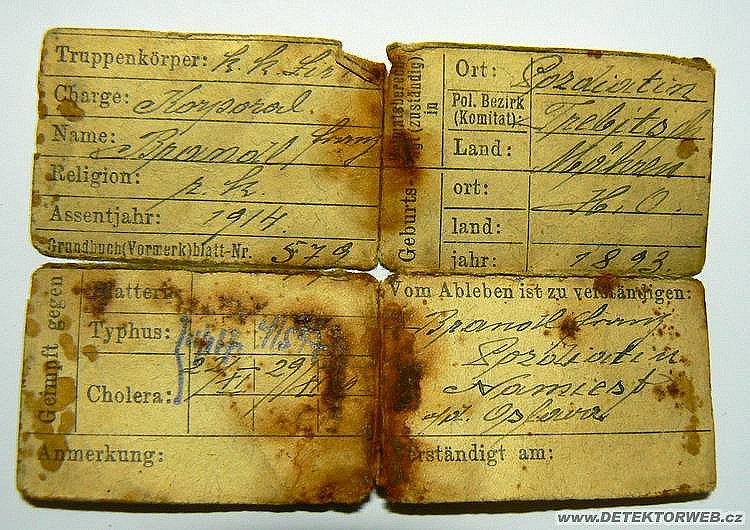 Truppenkörper: k. k. Lir
Charge: Korporal.
Name: Franz
Religion: r. k.
Assentjahr: 1914.
Grundbuch(Vormerk)blatt-Nr. 579
Geburts-
(zuständig)
in
Ort: Pozdiatin
Pol. Bezirk
(Komitat): Trebitsch
Land: Mähren
ort: H. O.
land:
jahr: 1893.
Geimpft gegen
Blattern
Typhus:
Cholera: 29
Anmerkung:
Vom Ableben ist zu verständigen:
Franz
Pozdiatin
Námiest
Oslava
Verständigt am:
www.DETEKTORWEB.cz